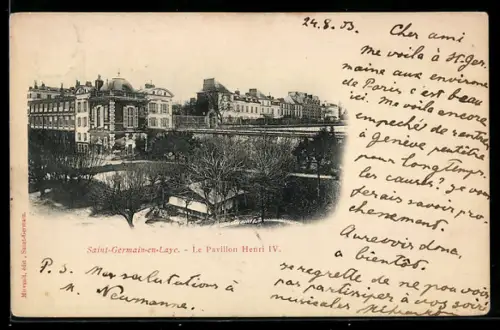 24.8.03.
Cher ami
me voilà à St.Ger.
maine aux environs
de Paris c'est beau
ici. me voilà encore
empeché de rentrer
à genève peutêtre
pour longtemps.
les causes? je vous
ferais savoir pro.
chenement.
Aurevoir donc,
a bientôt.
je regrette de ne pouvoir
pas participer à vos soir
musicales
Saint-Germain-en-Laye. - Le Pavillon Henri IV.
P.S. Mes salutations à
M. Neumanne.
Mavenil, édit., Saint-Germain.